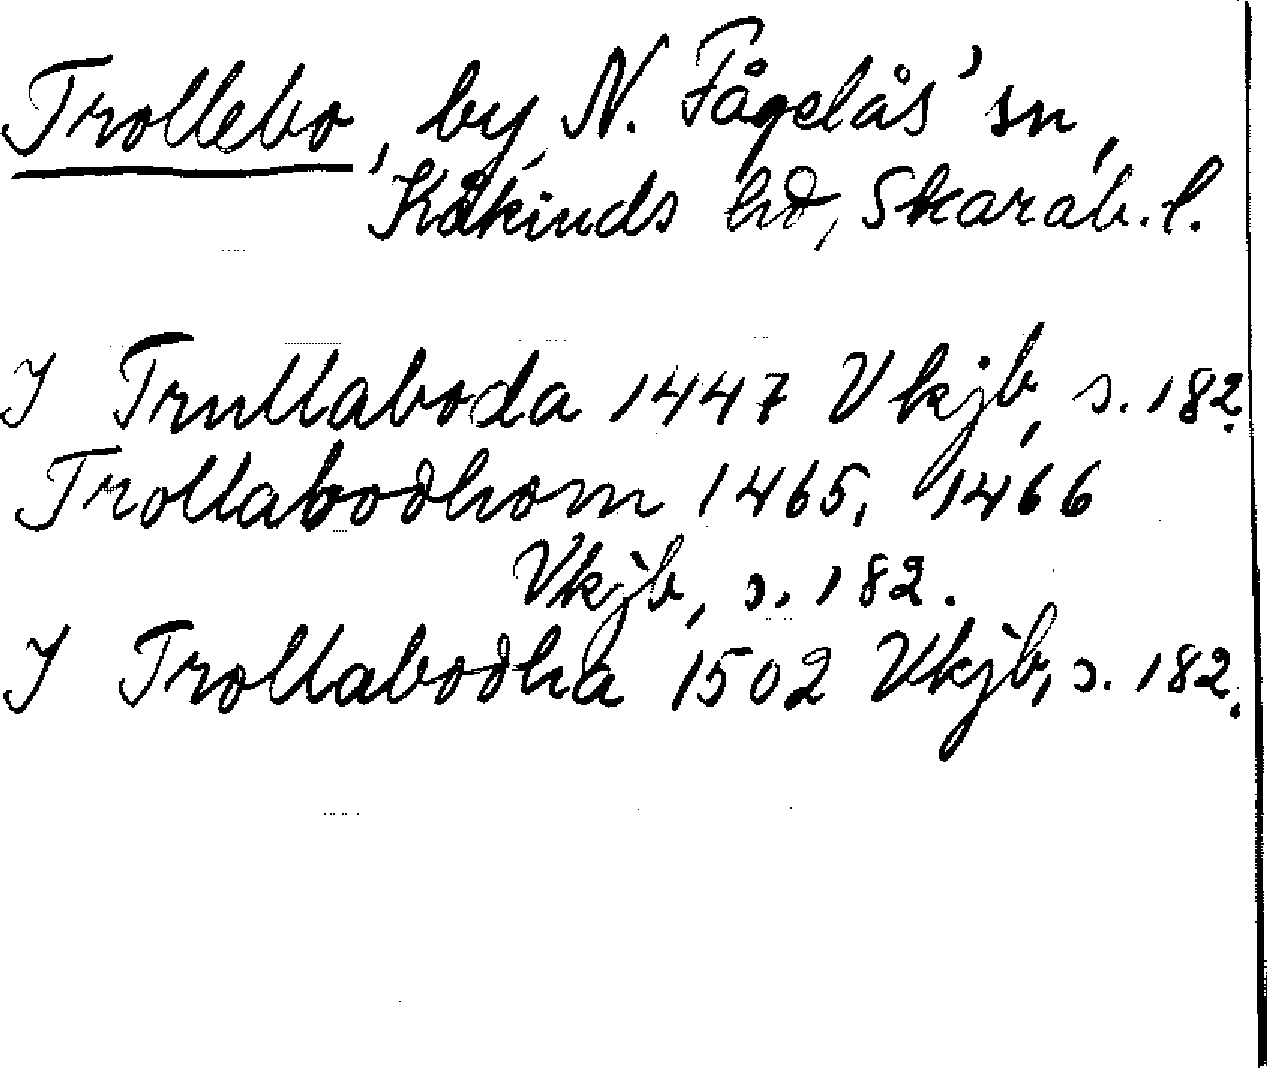 Trollebo, by, N. Fågelås' sn,
Kåkinds hd, Skarab. l.
I Trullaboda 1447 Vkjb, s. 182.
Trollabodhom 1465, 1466
Vkjb, s. 182.
I Trollabodha 1502 Vkjb, s. 182.